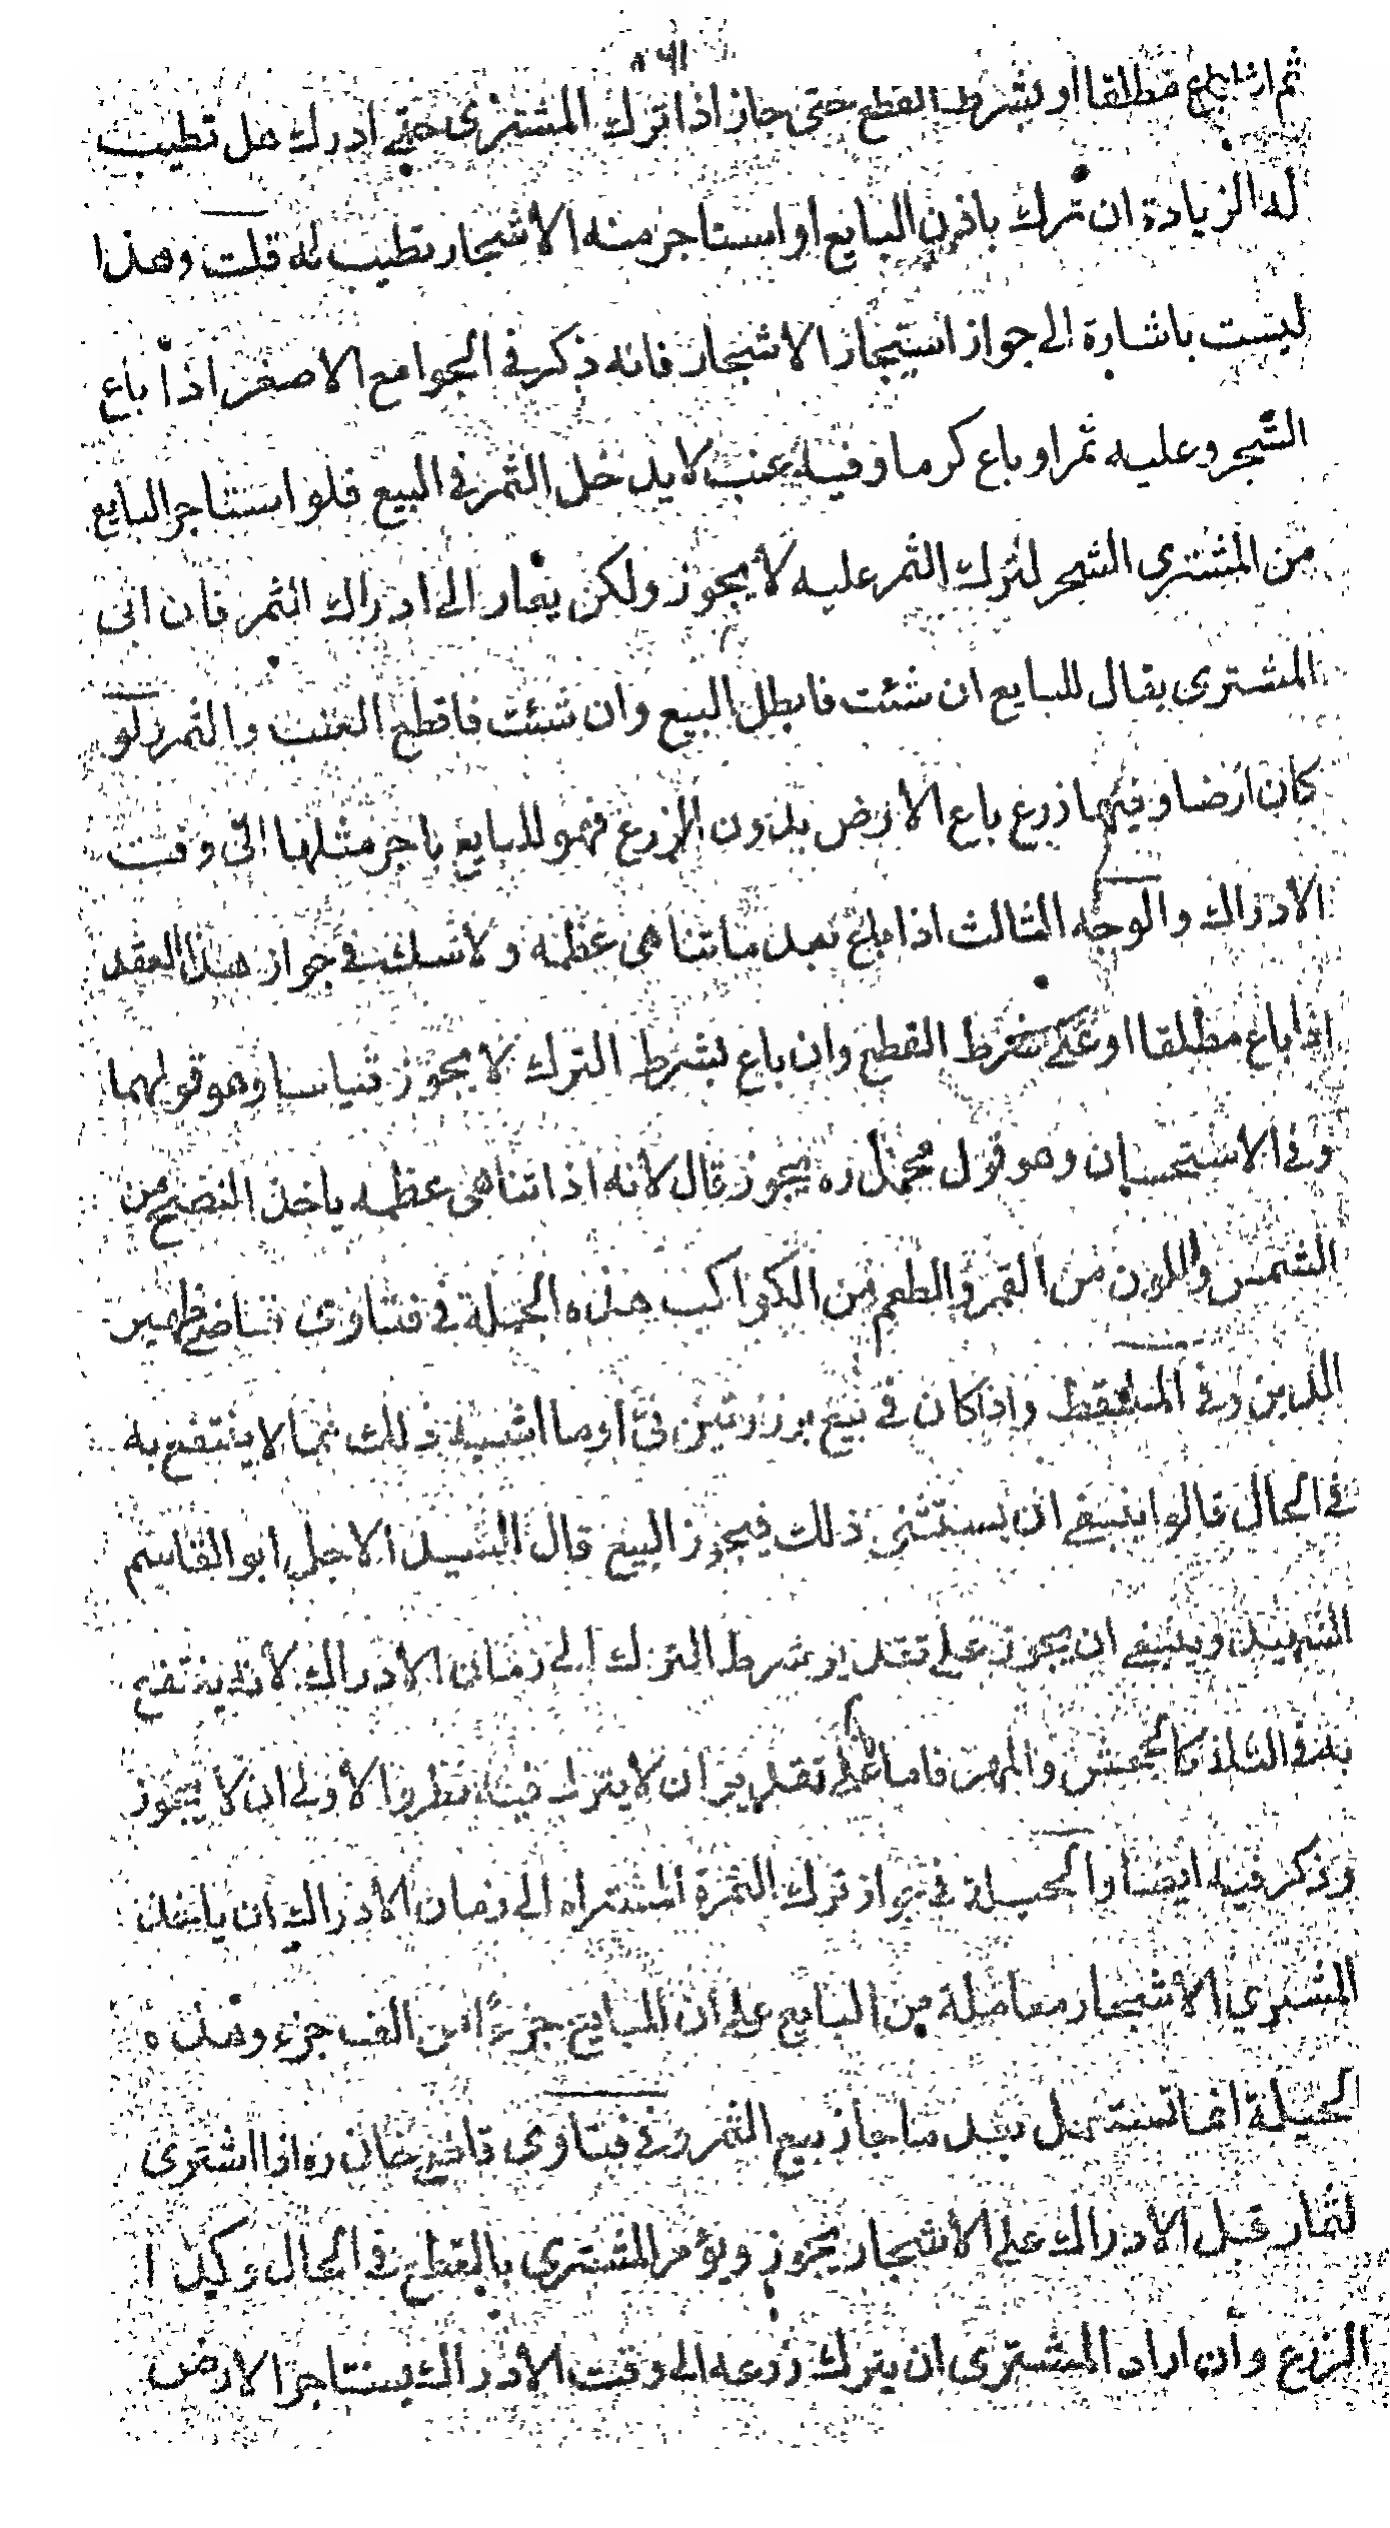 ثم ان باع مطلقا او بشرط القطع حتى جاز اذا ترك المشترى حتى ادرك هل تطيب
له الزيادة ان ترك باذن البايع او استاجر منه الاشجار تطيب له قلت وهذا
ليست باشارة الى جواز استيجار الاشجار فانه ذكر فى الجوامع الاصغر اذا باع
الشجر وعليه ثمر او باع كرما وفيه عنب لا يدخل الثمر فى البيع فلو استاجر البايع
من المشترى الشجر لترك الثمر عليه لا يجوز ولكن يعار الى ادراك الثمر فان ابى
المشترى يقال للبايع ان شئت فابطل البيع وان شئت فاقطع العنب والثمر ولو
كان ارضا وفيها زرع باع الارض بدون الزرع فهو للبايع باجر مثلها الى وقت
الادراك والوجه الثالث اذا باع بعد ما تناهى عظمه ولا شك فى جواز هذا العقد
اذا باع مطلقا او على شرط القطع وان باع بشرط الترك لا يجوز قياسا وهو قولهما
وفى الاستحسان وهو قول محمد ره يجوز قال لانه اذا تناهى عظمه ياخذ النضج من
الشمس واللون من القمر والطعم من الكواكب هذه الجملة فى فتاوى قاضى ظهير
الدين وفى الملتقط واذا كان فى بيع او ما اشبه ذلك مما لا ينتفع به
فى الحال قالوا ينبغى ان يستثنى ذلك فيجوز البيع قال السيد الاجل ابو القاسم
الشهيد وينبغى ان يجوز على تقدير شرط الترك الى زمان الادراك لانه ينتفع
به فى كالجحش والمهر فاما على تقدير ان لا يترك الاولى ان لا يجوز
وذكر فيه ايضا والحيلة فى جواز ترك الثمرة المشتراه الى زمان الادراك ان ياخذ
المشترى الاشجار معاملة من البايع على ان للبايع جزءا من الف جزء وهذه
الحيلة انما تستعمل بعد ما جاز بيع الثمر وفى فتاوى قاضى خان ره اذا اشترى
لثمار قبل الادراك على الاشجار يجوز ويؤمر المشترى بالقطع فى الحال وكذا
الزرع وان اراد المشترى ان يترك زرعه الى وقت الادراك يستاجر الارض